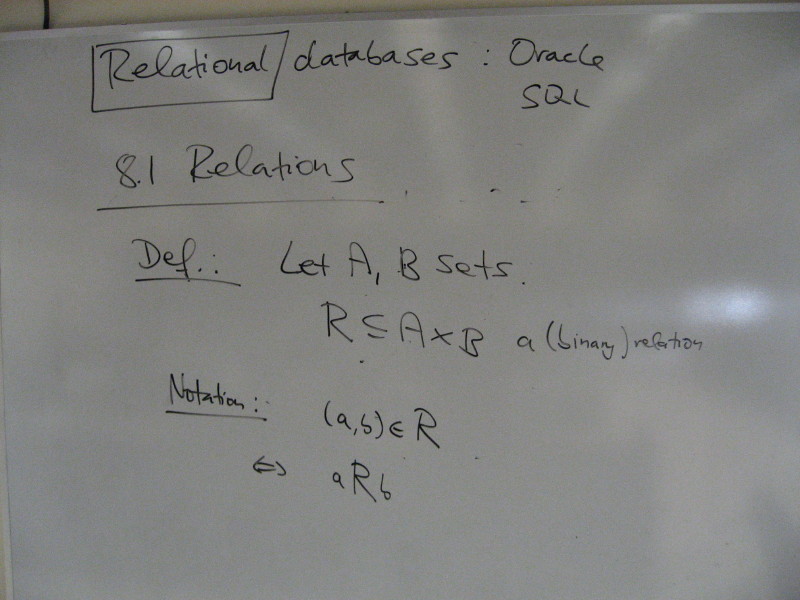 Relational databases : Oracle
SQL
8.1 Relations
Def.: Let A, B sets.
R ⊆ A × B a (binary) relation
Notation: (a,b) ∈ R
⇔ aRb